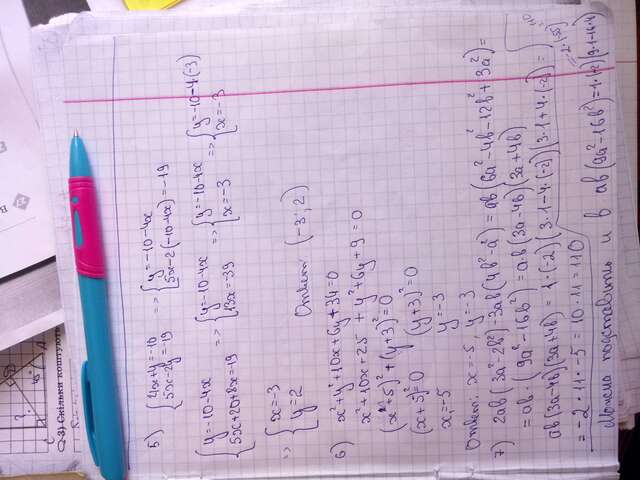 5) { 4x+y=-10
5x-2y=19 => { y=-10-4x
5x-2(-10-4x)=-19
{ y=-10-4x
5x+20+8x=-19 => { y=-10-4x
13x=-39 => { y=-10-4x
x=-3 => { y=-10-4·(-3)
x=-3
=> { x=-3
y=2 Ответ: (-3; 2)
6) x²+y²+10x+6y+34=0
x²+10x+25 + y²+6y+9=0
(x+5)²+(y+3)²=0
(x+5)²=0 (y+3)²=0
x=-5 y=-3
Ответ: x=-5, y=-3
7) 2ab(3a²-2b²)-3ab(4b²-a²)=ab(6a²-4b²-12b²+3a²)=
=ab·(9a²-16b²)=ab(3a-4b)(3a+4b)
ab(3a-4b)(3a+4b)=1·(-2)(3·1-4·(-2))(3·1+4·(-2))=
=-2·11·-5=10·11=110
Можно подставить и в ab(9a²-16b²)=1·(-2)(9·1-16·4)
=-2·(-55)=110
Скільки коштують
?